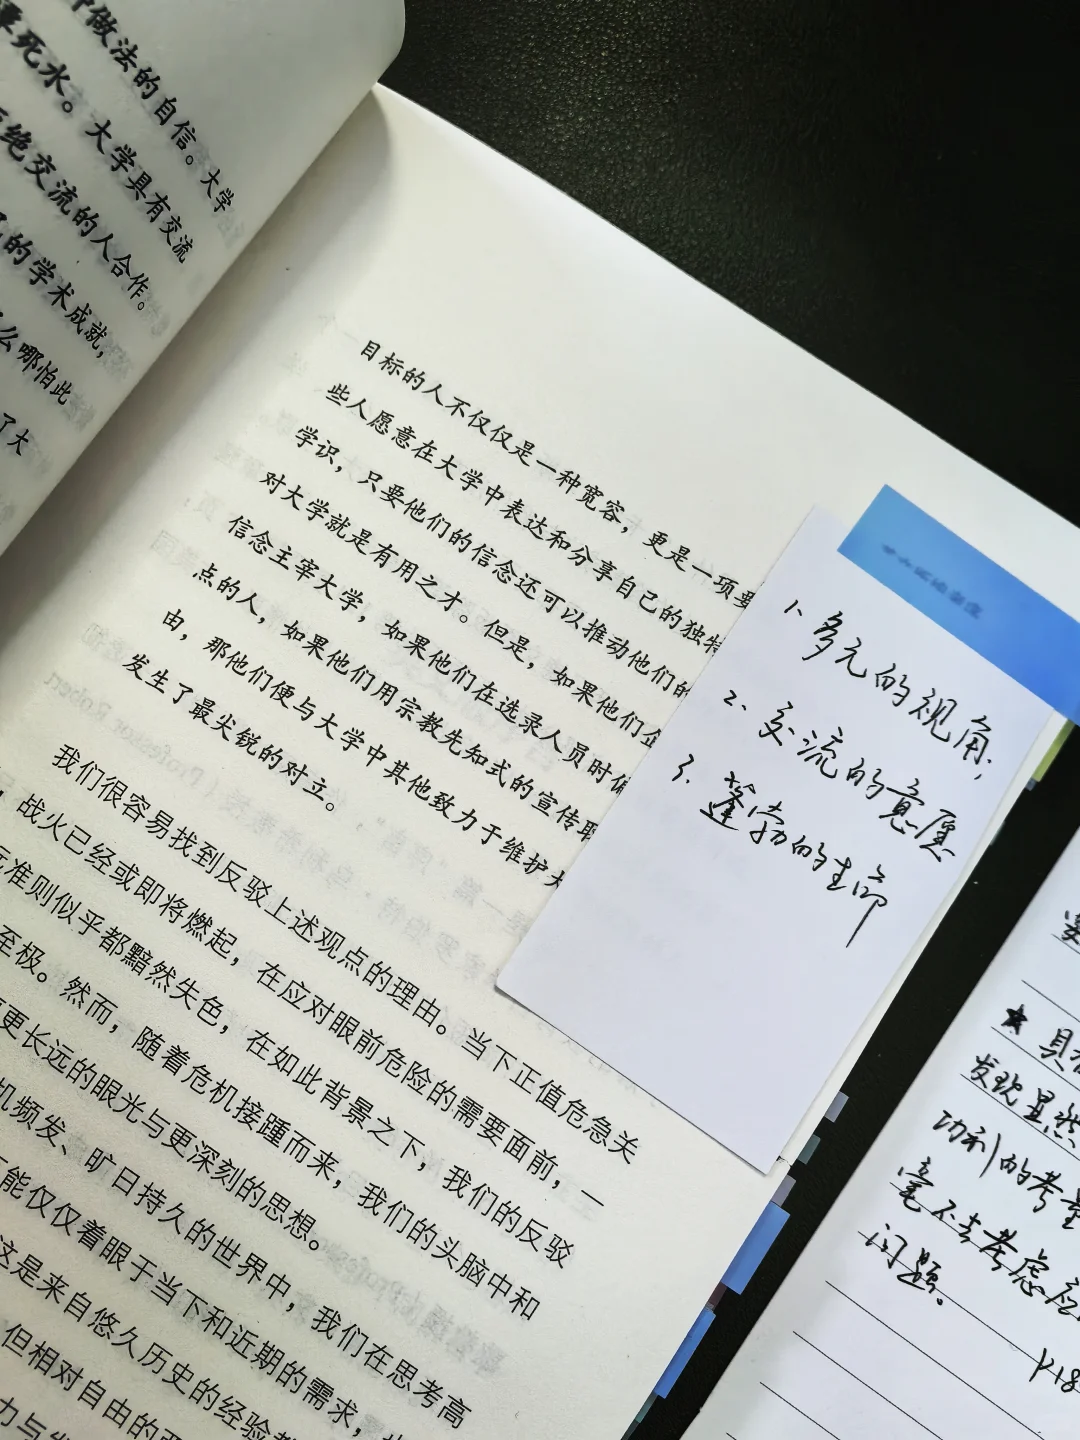 做法的自信。大学
潭死水。大学具有交流
绝交流的人合作。
的学术成就，
么哪怕此
了大
目标的人不仅仅是一种宽容，更是一项要
些人愿意在大学中表达和分享自己的独特
学识，只要他们的信念还可以推动他们的
对大学就是有用之才。但是，如果他们企
信念主宰大学，如果他们在选录人员时偏
点的人，如果他们用宗教先知式的宣传取
由，那他们便与大学中其他致力于维护大
发生了最尖锐的对立。
我们很容易找到反驳上述观点的理由。当下正值危急关
，战火已经或即将燃起，在应对眼前危险的需要面前，一
准则似乎都黯然失色，在如此背景之下，我们的反驳
至极。然而，随着危机接踵而来，我们的头脑中和
更长远的眼光与更深刻的思想。
机频发、旷日持久的世界中，我们在思考高
能仅仅着眼于当下和近期的需求，
这是来自悠久历史的经验
但相对自由的
力与
1、多元的视角；
2、交流的意愿
3、蓬勃的生命
★具有
发现显然
功利的考量
毫不去考虑应
问题。
P18